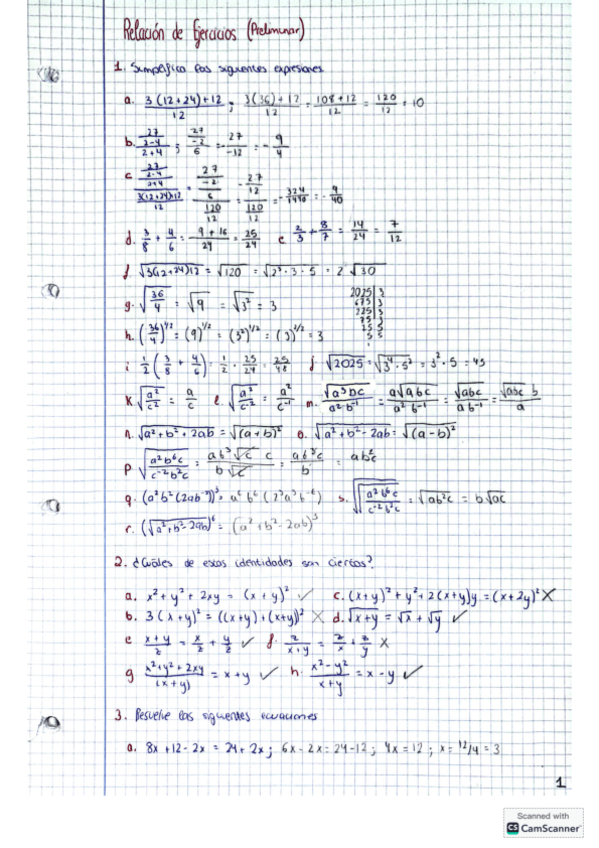 Relación de Ejercicios (Preliminar)
1. Simplifica las siguientes expresiones
a. 3(12+24)+12/12 ; 3(36)+12/12 = 108+12/12 = 120/12 = 10
b. 27/2-4/2+4 ; 27/-2/6 = 27/-12 = -9/4
c. 27/2-4/2+4/3(12+24)+12/12 = 27/-2/6/120/12 = -27/12/120/12 = -324/1440 = -9/40
d. 3/8 + 4/6 = 9+16/24 = 25/24 e. 2/3 + 8/7 = 14/24 = 7/12
f. √3(12+24)12 = √120 = √2³·3·5 = 2√30
g. √36/4 = √9 = √3² = 3
2025 | 3
675 | 3
225 | 3
75 | 3
25 | 5
5 | 5
1
h. (36/4)^1/2 = (9)^1/2 = (3²)^1/2 = (3)^2/2 = 3
i. 1/2 (3/8 + 4/6) = 1/2 · 25/24 = 25/48 j. √2025 = √3⁴·5² = 3²·5 = 45
k. √a²/c² = a/c l. √a²/c⁻² = a²/c⁻¹ m. √a³bc/a²b⁻¹ = a√abc/a²b⁻¹ = √abc/ab⁻¹ = √abc b/a
n. √a²+b²+2ab = √(a+b)² o. √a²+b²-2ab = √(a-b)²
p √a²b⁶c/c⁻²b²c = ab³√c c/b√c = ab³c/b = ab²c
q. (a²b²(2ab⁻²))³ = a⁶b⁶(2³a³b⁻⁶) s. √√a²b⁶c/c⁻²b²c = √ab²c = b√ac
r. (√a²+b²-2ab)⁶ = (a²+b²-2ab)³
2. ¿Cuáles de estas identidades son ciertas?
a. x²+y²+2xy = (x+y)² ✓ c. (x+y)²+y²+2(x+y)y = (x+2y)² X
b. 3(x+y)² = ((x+y)+(x+y))² X d. √x+y = √x + √y ✓
e x+y/z = x/z + y/z ✓ f. z/x+y = z/x + z/y X
g x²+y²+2xy/(x+y) = x+y ✓ h. x²-y²/x+y = x-y ✓
3. Resuelve las siguientes ecuaciones
a. 8x+12-2x = 24+2x ; 6x-2x = 24-12 ; 4x = 12 ; x = 12/4 = 3
1
Scanned with
CS CamScanner